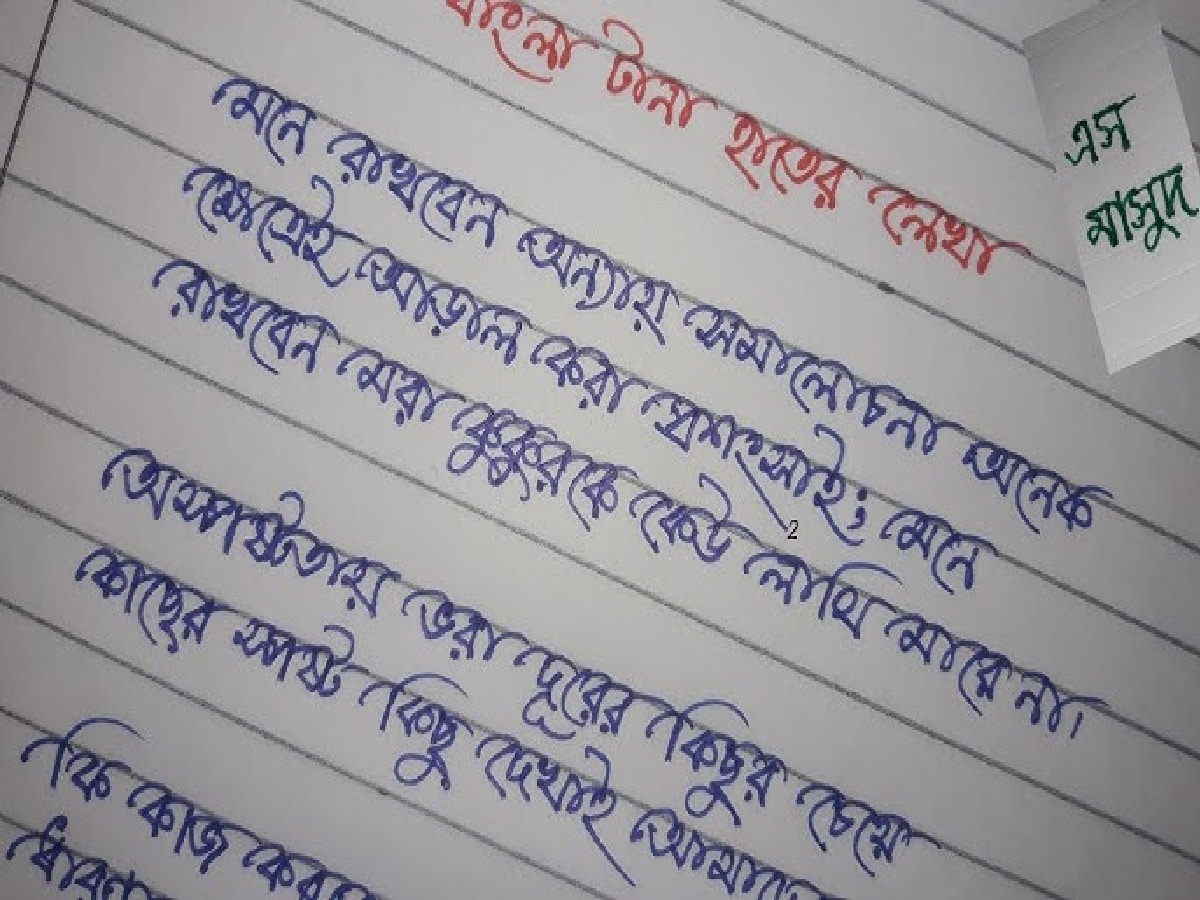 বাংলা টানা হাতের লেখা
এস
মাসুদ
মনে রাখবেন অন্যায় সমালোচনা অনেক
ক্ষেত্রেই আড়াল করা প্রশংসাই; মনে
রাখবেন মরা কুকুরকে কেউ লাথি মারে না।
2
অস্পষ্টতায় ভরা দূরের কিছুর চেয়ে
কাছের স্পষ্ট কিছু দেখাই
কি কাজ